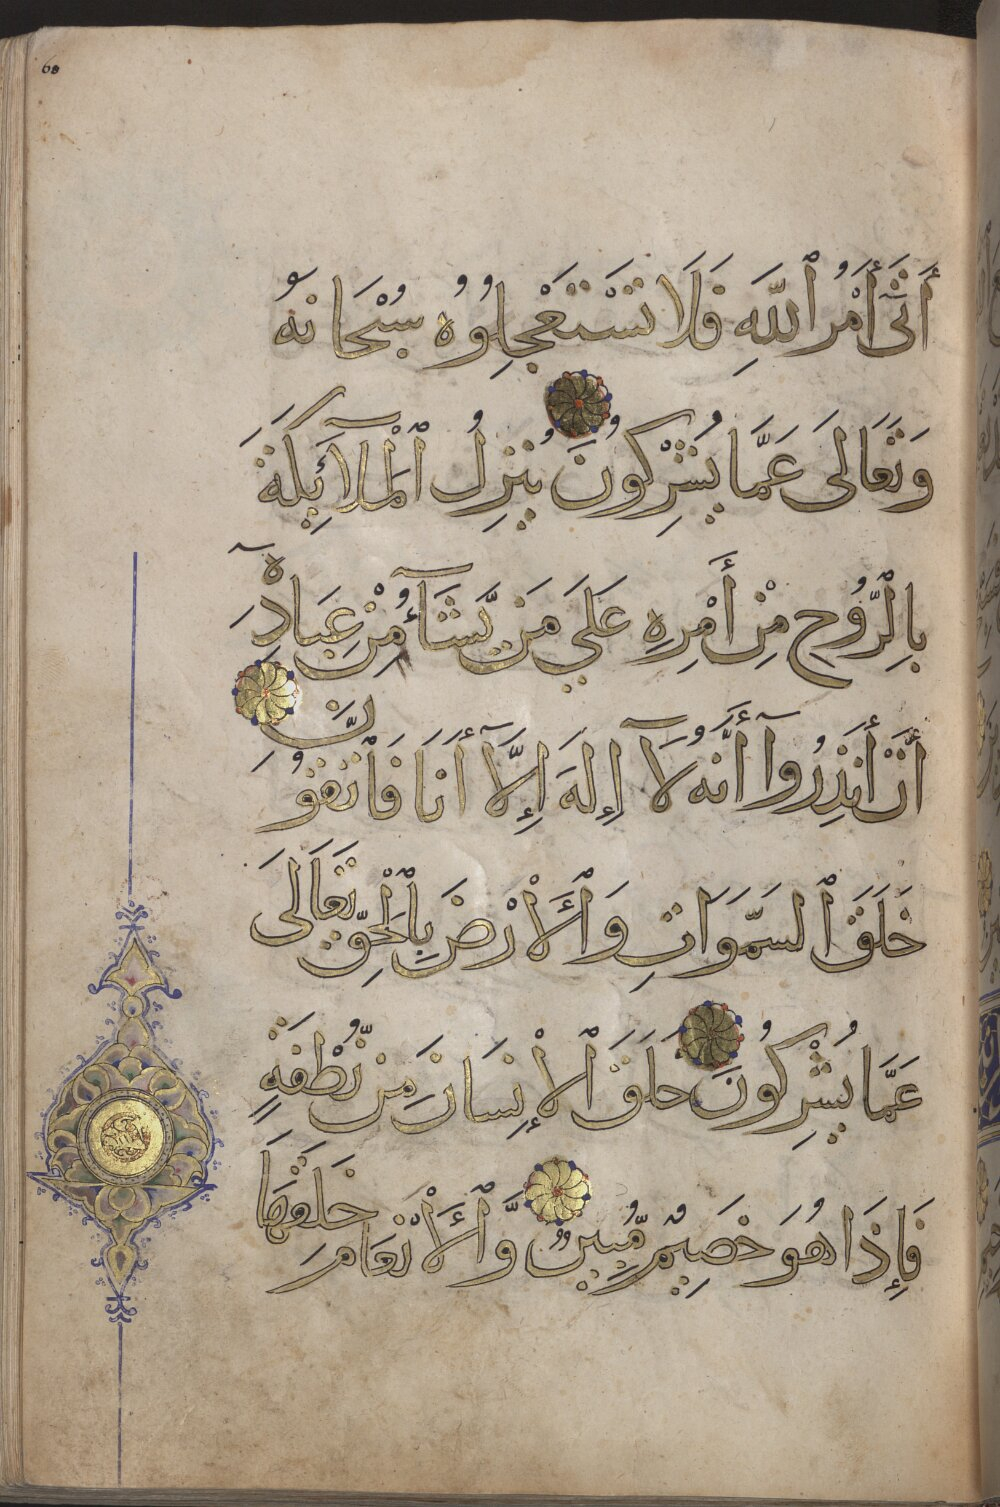 60
أَتَىٰٓ أَمْرُ ٱللَّهِ فَلَا تَسْتَعْجِلُوهُ سُبْحَانَهُ
وَتَعَالَى عَمَّا يُشْرِكُونَ يُنَزِلُ ٱلْمَلَآئِكَةَ
بِالرُّوحِ مِنْ أَمْرِهِ عَلَي مَن يَّشَآءُ مِنْ عِبَادِهِٓ
أَنْ أَنذِرُوٓا أَنَّهُ لَآ إِلَهَ إِلَّآ أَنَا فَاتَّقُونِ
خَلَقَ ٱلسَّمَوَاتِ وَٱلْأَرْضَ بِالْحَقِّ تَعَالَى
عَمَّا يُشْرِكُونَ خَلَقَ ٱلْإِنْسَانَ مِن نُّطْفَةٍ
فَإِذَا هُوَ خَصِيمٌ مُّبِينٌ وَّٱلْأَنْعَامَ خَلَقَهَا